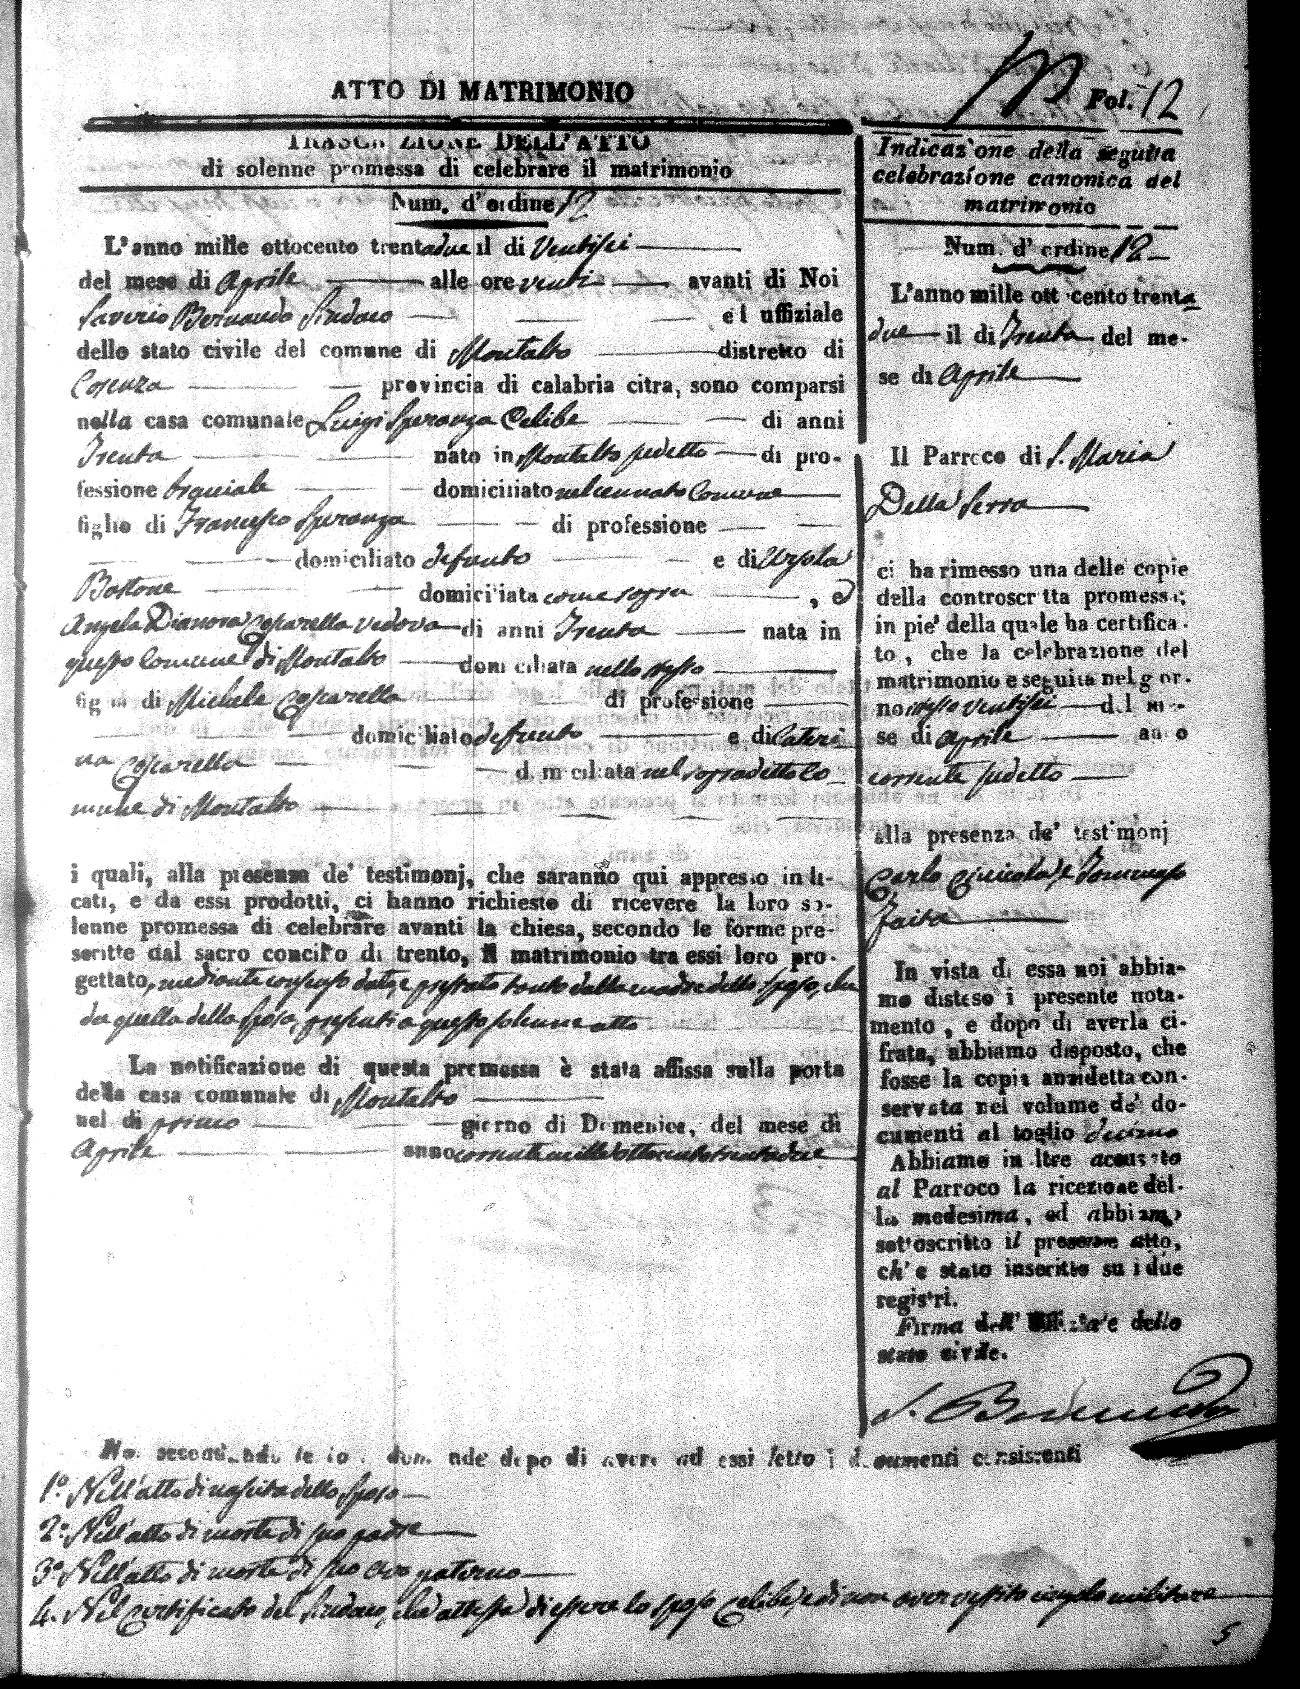 ATTO DI MATRIMONIO
Fol. 12
TRASCRIZIONE DELL'ATTO
di solenne promessa di celebrare il matrimonio
Num. d'ordine 12
L'anno mille ottocento trentadue il di Ventisei
del mese di Aprile alle ore venti avanti di Noi
Saverio Bernardo Sindaco ed uffiziale
dello stato civile del comune di Montalto distretto di
Cosenza provincia di calabria citra, sono comparsi
nella casa comunale Luigi Speranza Celibe di anni
Trenta nato in Montalto sudetto di pro-
fessione domiciliato nel cennato Comune
figlio di Francesco Speranza di professione
domiciliato defunto e di Ursola
Bastone domiciliata come sopra , e
Angela Dianora Casparella vedova di anni Trenta nata in
questo Comune di Montalto domiciliata nello stesso
figlia di Michele Casparella di professione
domiciliato defunto e di Cateri
na Casparella domiciliata nel sopradetto Co
mune di Montalto
i quali, alla presenza de' testimonj, che saranno qui appresso indi-
cati, e da essi prodotti, ci hanno richiesto di ricevere la loro so-
lenne promessa di celebrare avanti la chiesa, secondo le forme pre-
scritte dal sacro concilio di trento, il matrimonio tra essi loro pro-
gettato, mediante consenso dato, e prestato tanto dalla madre dello sposo, che
da quella della sposa, presenti a questo solenne atto
La notificazione di questa promessa è stata affissa sulla porta
della casa comunale di Montalto
nel di primo giorno di Domenica, del mese di
Aprile anno corrente mille ottocento trentadue
Noi secondando le loro domande dopo di avere ad essi letto i documenti consistenti
1° Nell'atto di nascita dello sposo
2° Nell'atto di morte di suo padre
3° Nell'atto di morte di suo avo paterno
4. Nel certificato del Sindaco, che attesta di essere lo sposo celibe, e di non aver vestito cingolo militare
Indicazione della seguita
celebrazione canonica del
matrimonio
Num. d'ordine 12
L'anno mille ottocento trenta
due il di Trenta del me-
se di Aprile
Il Parroco di S. Maria
Della Serra
ci ha rimesso una delle copie
della controscritta promessa;
in pie' della quale ha certifica-
to, che la celebrazione del
matrimonio e seguita nel gior-
no stesso ventisei del me-
se di Aprile anno
corrente sudetto
alla presenza de' testimonj
Carlo e Tommaso
Zaita
In vista di essa noi abbia-
mo disteso i presente nota-
mento, e dopo di averla ci-
frata, abbiamo disposto, che
fosse la copia anzidetta con-
servata nel volume de' do-
cumenti al foglio decimo
Abbiamo inoltre accusato
al Parroco la ricezione del-
la medesima, ed abbiamo
sottoscritto il presente atto,
ch'e stato inscritto su i due
registri.
Firma dell' Uffiziale dello
stato civile.
S. Bernardo
5